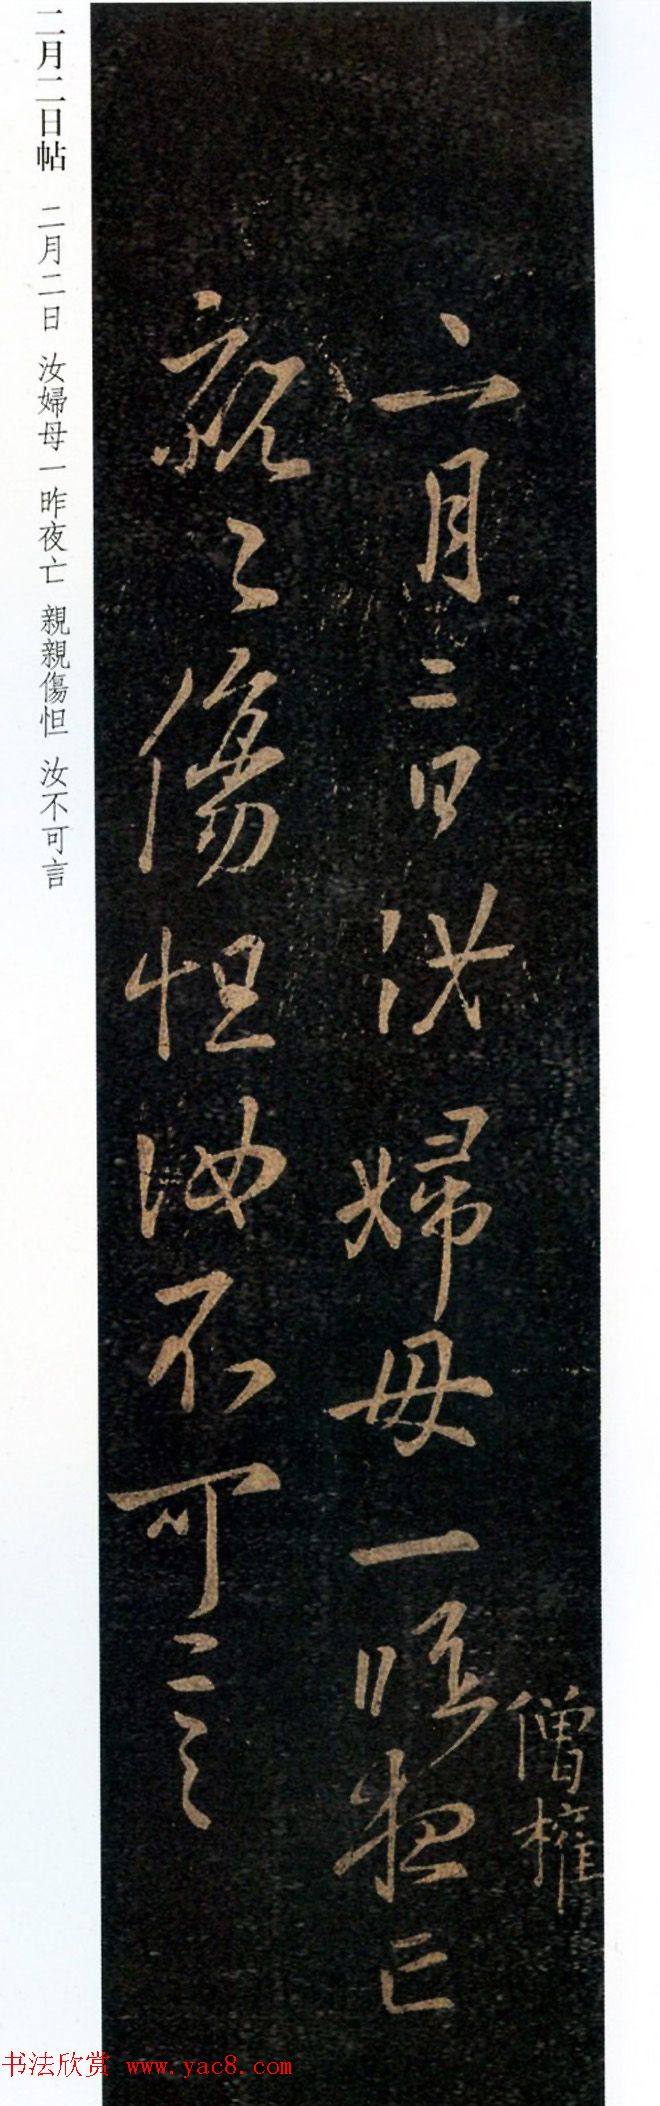 二月二日汝婦母一昨夜亡
僧權
親〻傷怛汝不可言
二月二日帖 二月二日 汝婦母一昨夜亡 親親傷怛 汝不可言
书法欣赏 www.yac8.com